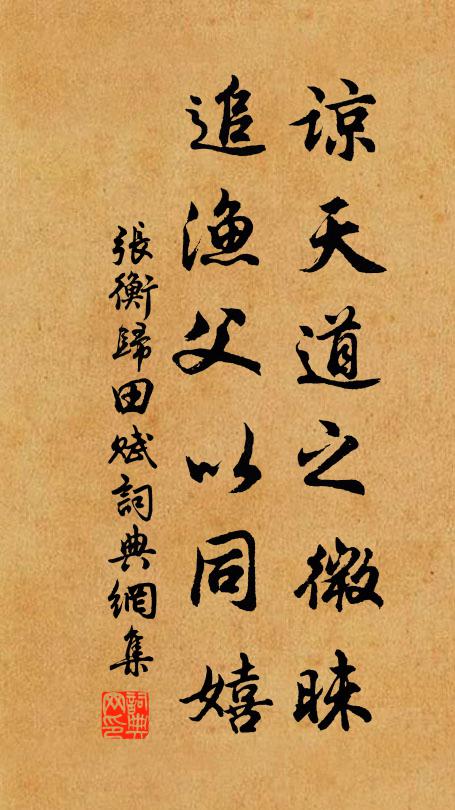 谅天道之微昧
追渔父以同嬉
張衡歸田赋詞典網集
詞典网印